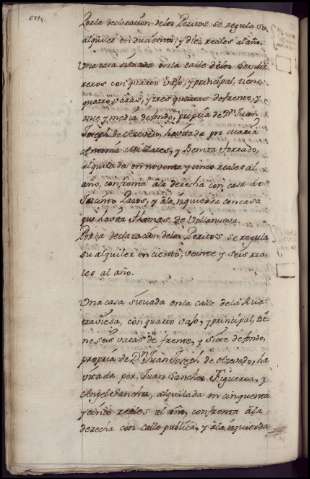 Por la declarazion de los Peritos se regula su
alquiler en duzientos y diez reales al año.
Una casa situada en la calle de los
reros con quarto vajo, y principal, tiene
quatro varas, y tres quartas de frente, y
y media de fondo, propria de Dn Juan
Joseph de havitada por Maria
Antonia y Benita
alquilada en noventa y cinco reales al
año, confronta ála derecha con casa de
Jacinto y ála izquierda con casa
que havita Thomas de Villanueva
Por la declarazion de los Peritos se regula
su alquiler en ciento, veinte y seis rea
les al año.
Una casa situada en la calle de la Rua
traviesa, con quarto vajo, y principal, tie
ne seis varas de frente, y siete de fondo,
propria de Dn Juan Joseph de ha
vitada por Juan Sanchez Figueroa, y
alquilada en cinquenta
y cinco reales al año, confronta ála
derecha con calle publica, y ála izquierda